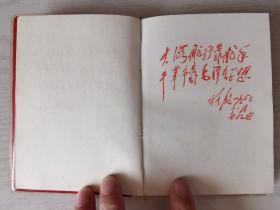 大海航行靠舵手
干革命靠毛泽东思想
林彪 一九六